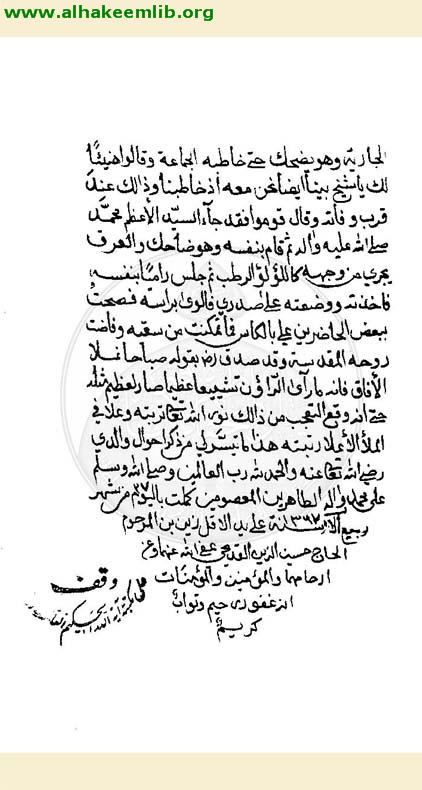 www.alhakeemlib.org
الجارية وهو يضحك حتى خاطبه الجماعة وقالوا هنيئًا
لك يا شيخ بيننا ايضا نحن معه اذ خاطبنا وذالك عند
قرب وفاته وقال قوموا فقد جآء السيّد الأعظم محمّد
صلى الله عليه واله ثم قام بنفسه وهو ضاحك والعرق
يجري من وجهه كاللؤلؤ الرطب ثم جلس رامسًا بنفسه
فاخذته ووضعته على صدري فالوى براسه فصحت
ببعض الحاضرين علي بالكاس فما تمكنت من سقيه وفاضت
روحه المقدسة وقد صدق رضي بقوله صباحا تملا
الآفاق فانه ما رآى الرّاؤن تشييعا عظيما صار لعظيم مثله
حتى انه وقع التعجب من ذالك نور الله تعالى تربته وعلا في
الملأ الأعلا رتبته هذا ما تيسّر لي من ذكر احوال والدي
رضي الله تعالى عنه والحمد لله رب العالمين وصلى الله وسلم
على محمد واله الطاهرين المعصومين كملت باليوم ٢٧ من شهر
ربيع الآخر سنة ١٣٦٧ على يد الاقل زين بن المرحوم
الحاج حسين الزين القديحي عفى الله عنهما وعن
ارحامهما والمؤمنين والمؤمنات
انه غفور رحيم وتواب
كريم
وقف
مكتبة آية الله الحكيم